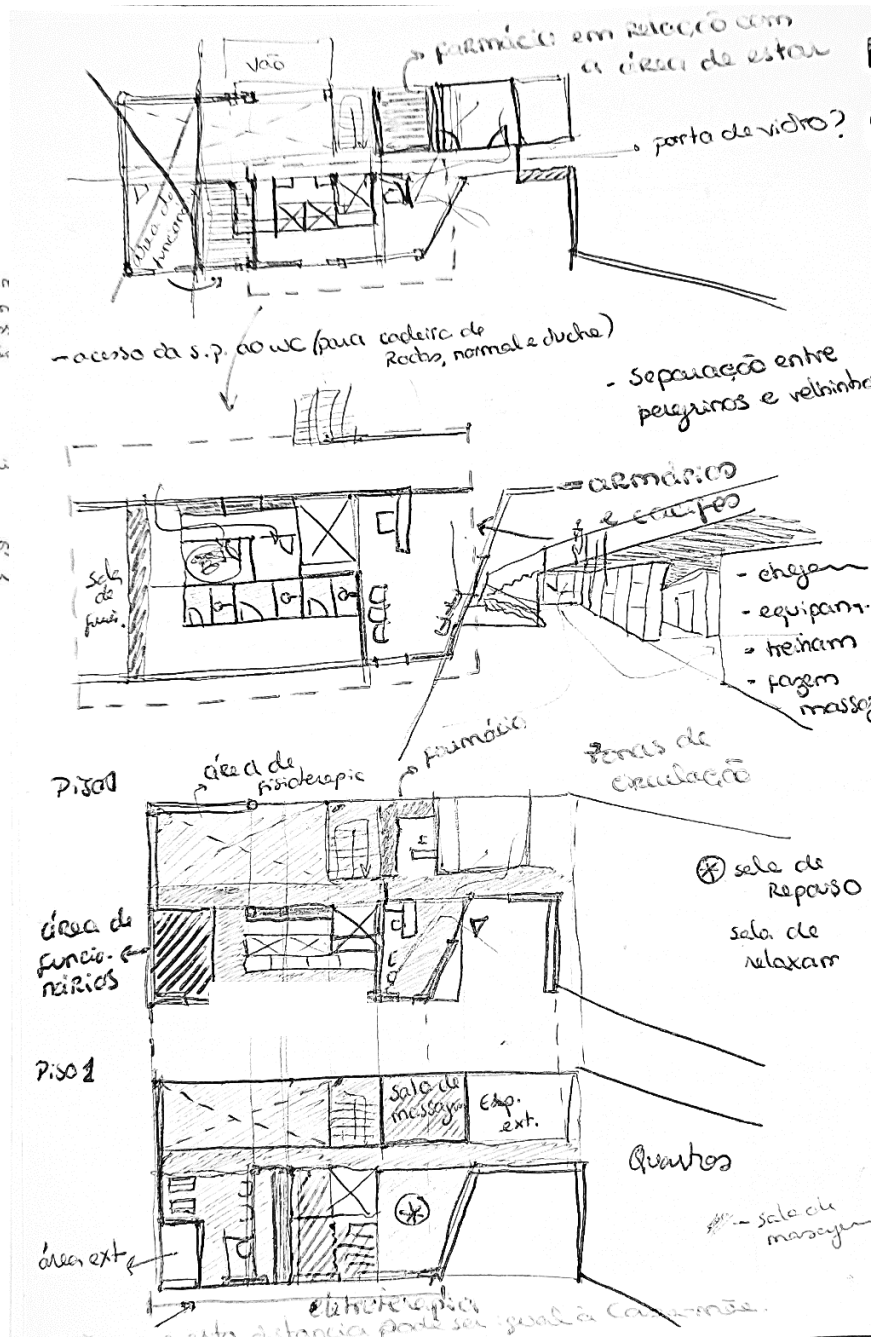 vão
farmácia em relação com
a área de estar
• porta de vidro?
área de
funcion.
- acesso da s.p. ao WC (para cadeira de
Rodas, normal e duche)
- Separação entre
peregrinos e velhinho
armários
e cacifos
sala
de
func.
- chegam
- equipam-
- treinam
- fazem
massag
Piso 0
área de
fisioterapia
farmácia
zonas de
circulação
sala de
Repouso
sala de
relaxam
área de
funcio-
nários
Piso 1
sala de
massagem
Esp.
ext.
Quartos
- sala de
massagem
área ext
eletroterapia
esta distancia pode ser igual à Casa-mãe.